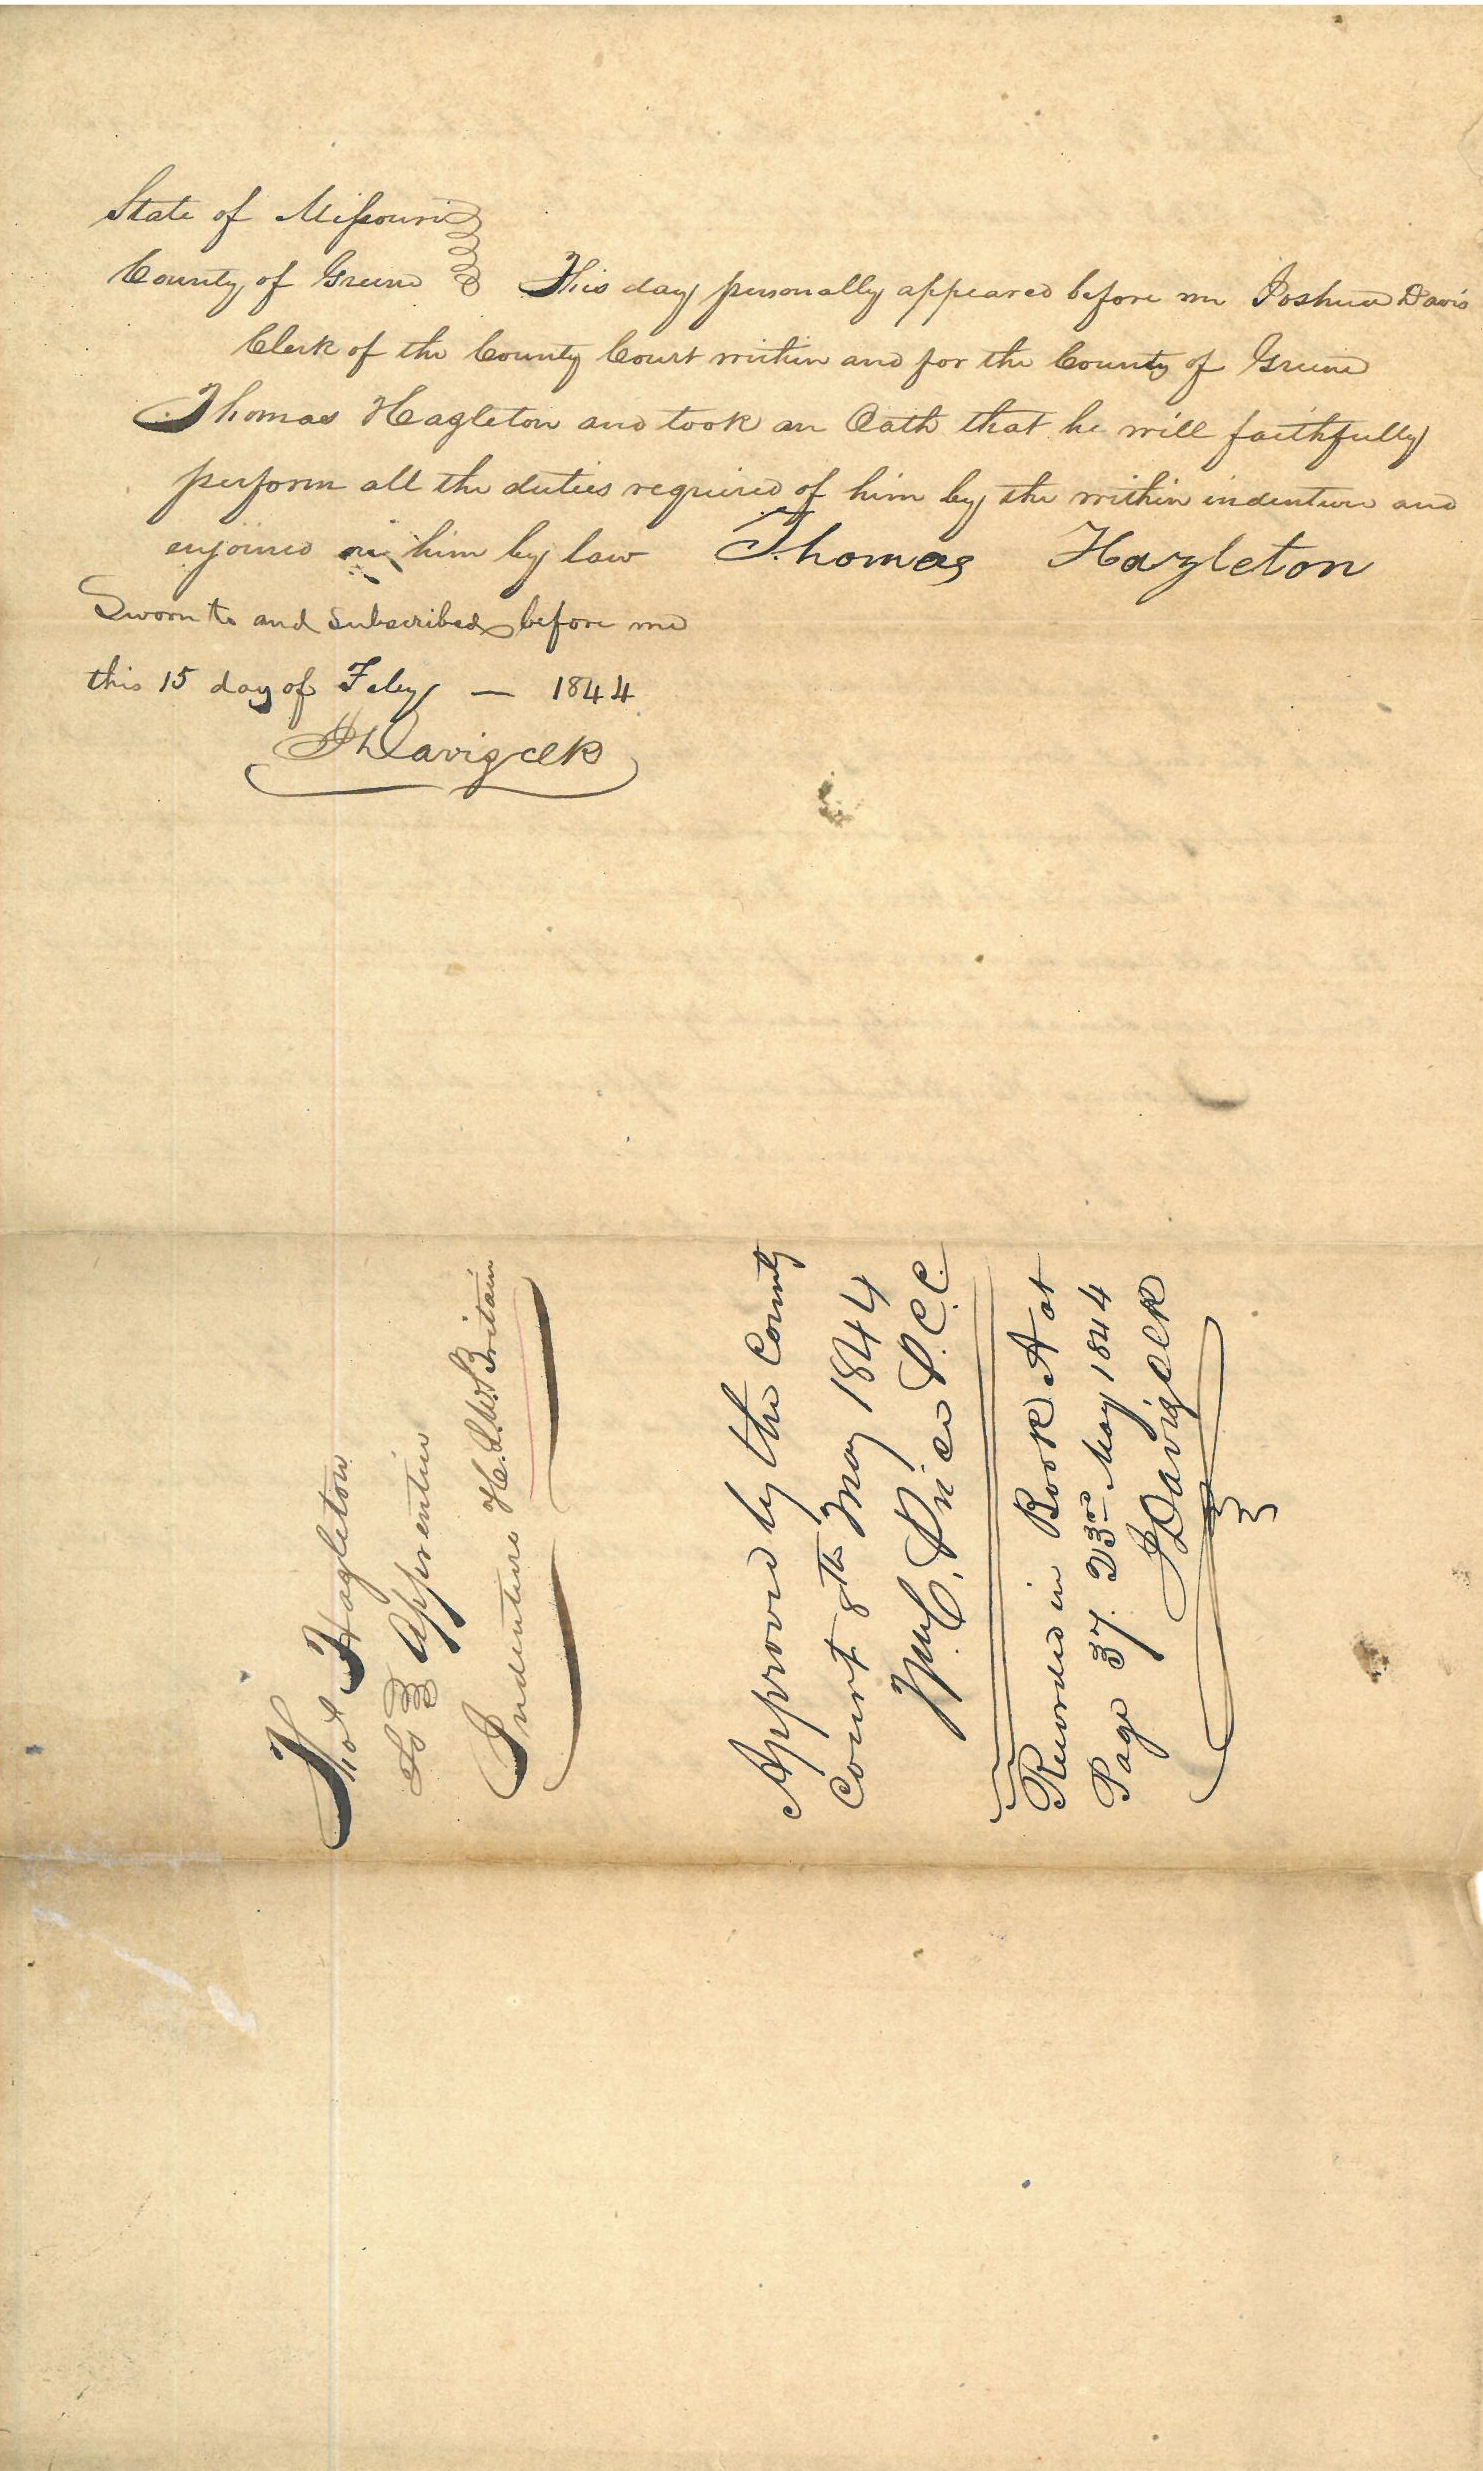 State of Missouri
County of Greene This day personally appeared before me Joshua Davis
Clerk of the County Court within and for the County of Greene
Thomas Hazleton and took an Oath that he will faithfully
perform all the duties required of him by the within indenture and
enjoined on him by law Thomas Hazleton
Sworn to and subscribed before me
this 15 day of Feby — 1844
J Davis clk
Thos Hazleton
To Apprentice
Indenture H. L. W. Britain
Approved by the County
Court 8th May 1844
Wm C. Price P.C.C.
Recorded in Book A at
Page 37. 23rd May 1844
J Davis clk